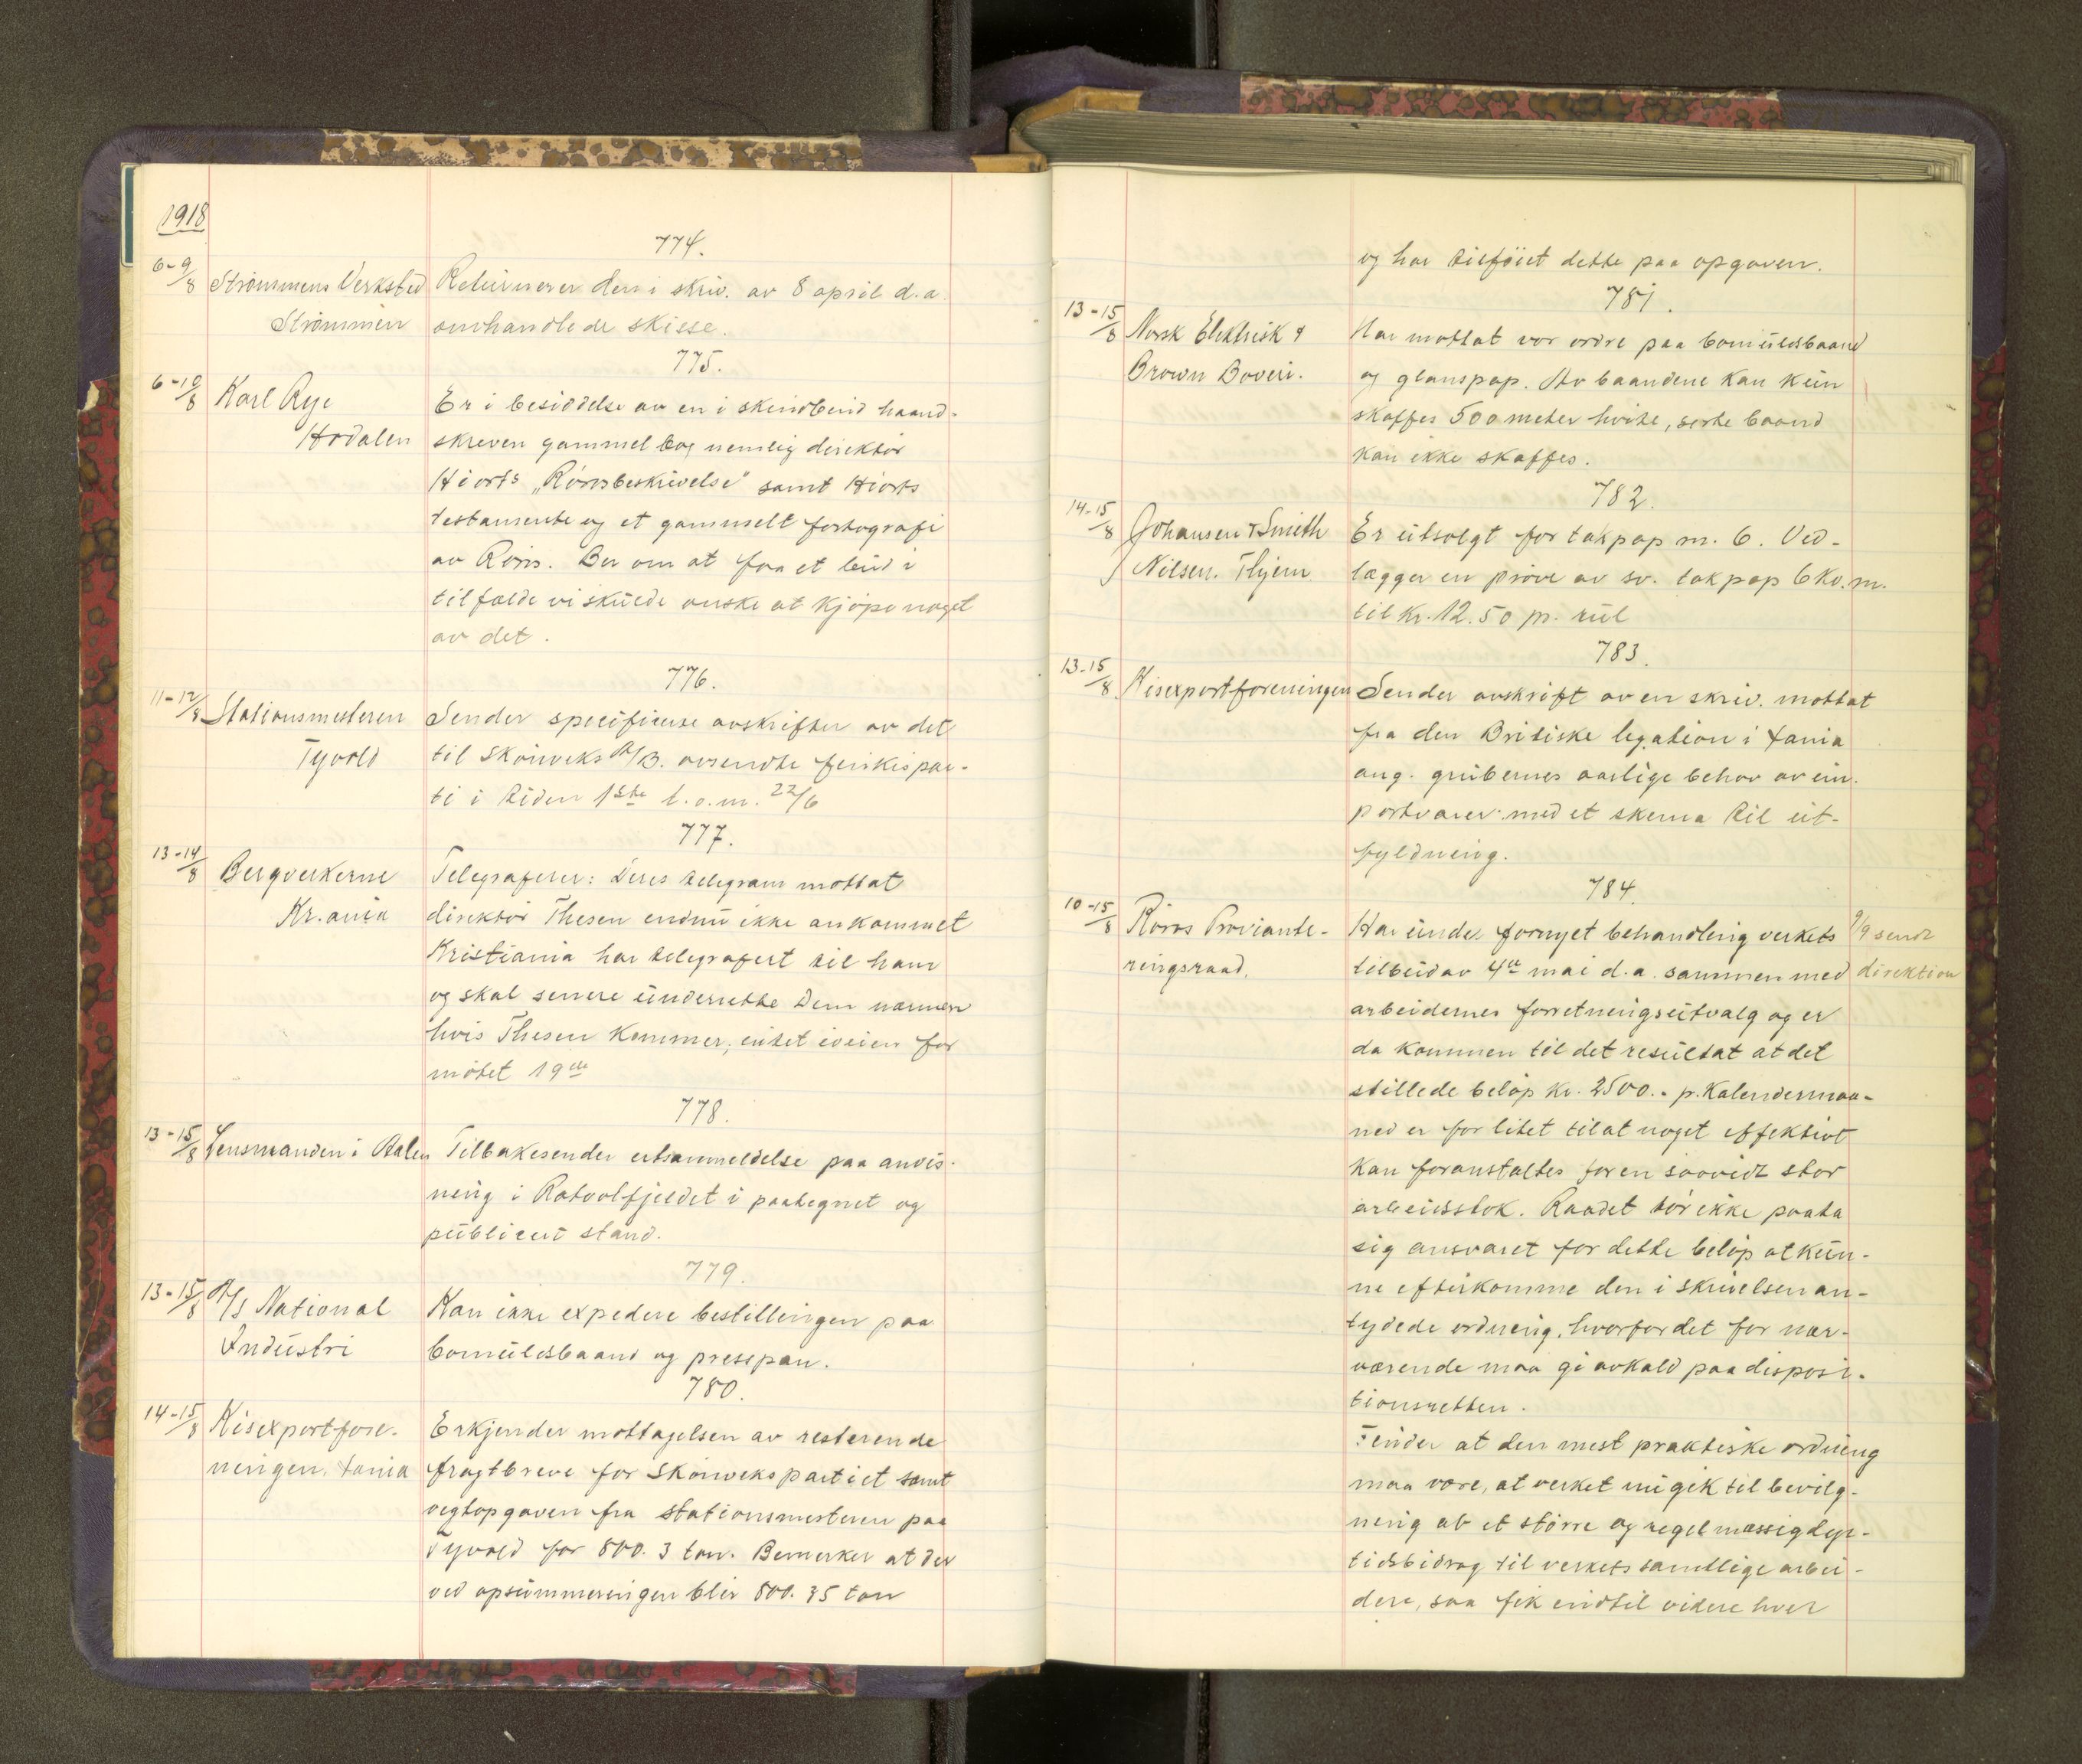 1918
774.
6-9/8 Strømmens Verksted Returnerer den i skriv. av 8 april d.a.
Strømmen omhandlede skisse.
775.
6-10/8 Karl Rye Er i besiddelse av en i skindbind haand-
Hodalen skreven gammel bog nemlig direktør
Hiorts „Rørosbeskrivelse" samt Hiorts
testamente og et gammelt fortografi
av Røros. Ber om at faa et bud i
tilfælde vi skulde ønske at kjøpe noget
av det.
776.
11-12/8 Stationsmesteren Sender specificerte avskrifter av det
Tyvold til Skoinveks A/B. avsendte finkispar-
ti i tiden 1ste t.o.m. 22/6
777.
13-14/8 Bergverkerne Telegraferer: Deres telegram mottat
Kr.ania direktør Thesen endnu ikke ankommet
Kristiania har telegrafert til ham
og skal senere underrette Dem nærmere
hvis Thesen kommer, intet iveien for
møtet 19de
778.
13-15/8 Lensmanden i Aalen Tilbakesender utsanmeldelse paa anvis-
ning i Ratvolfjeldet i paategnet og
publicert stand.
779.
13-15/8 A/S National Kan ikke expedere bestillingen paa
Industri bomuldsbaand og presspan.
780.
14-15/8 Kisexportfore- Erkjender mottagelsen av resterende
ningen, Xania fragtbreve for Skoinvekspartiet samt
vegtopgaven fra stationsmesteren paa
Tyvold for 800.3 ton. Bemerker at der
ved opsummeringen blir 800.35 ton
og har tilføiet dette paa opgaven.
781.
13-15/8 Norsk Elektrisk & Har mottat vor ordre paa bomuldsbaand
Brown Boveri. og glanspap. Av baandene kan kun
skaffes 500 meter hvite, sorte baand
kan ikke skaffes.
782.
14-15/8 Johansen & Smith Er utsolgt for takpap m. 6. Ved-
Nilsen. Thjem lægger en prøve av sv. takpap 6 kv.m.
til kr. 12.50 pr. rul
783.
13-15/8 Kisexportforeningen Sender avskrift av en skriv. mottat
fra den Britiske legation i Xania
ang. grubernes aarlige behov av im-
portvarer med et skema til ut-
fyldning.
784.
10-15/8 Røros Proviante- Har under fornyet behandling verkets 9/9 sendt
ringsraad. tilbud av 4de mai d.a. sammen med direktion
arbeidernes forretningsutvalg og er
da kommen til det resultat at det
stillede beløp kr. 2500.- p. Kalendermaa-
ned er for litet til at noget effektivt
kan foranstaltes for en saavidt stor
arbeidsstok. Raadet tør ikke paata
sig ansvaret for dette beløp at kun-
ne efterkomme den i skrivelsen an-
tydede ordning, hvorfor det for nær-
værende maa gi avkald paa disposi-
tionsretten.
Finder at den mest praktiske ordning
maa være, at verket nu gik til bevilg-
ning at et større og regelmæssig dyr-
tidsbidrag til verkets samtlige arbei-
dere, saa fik indtil videre hver